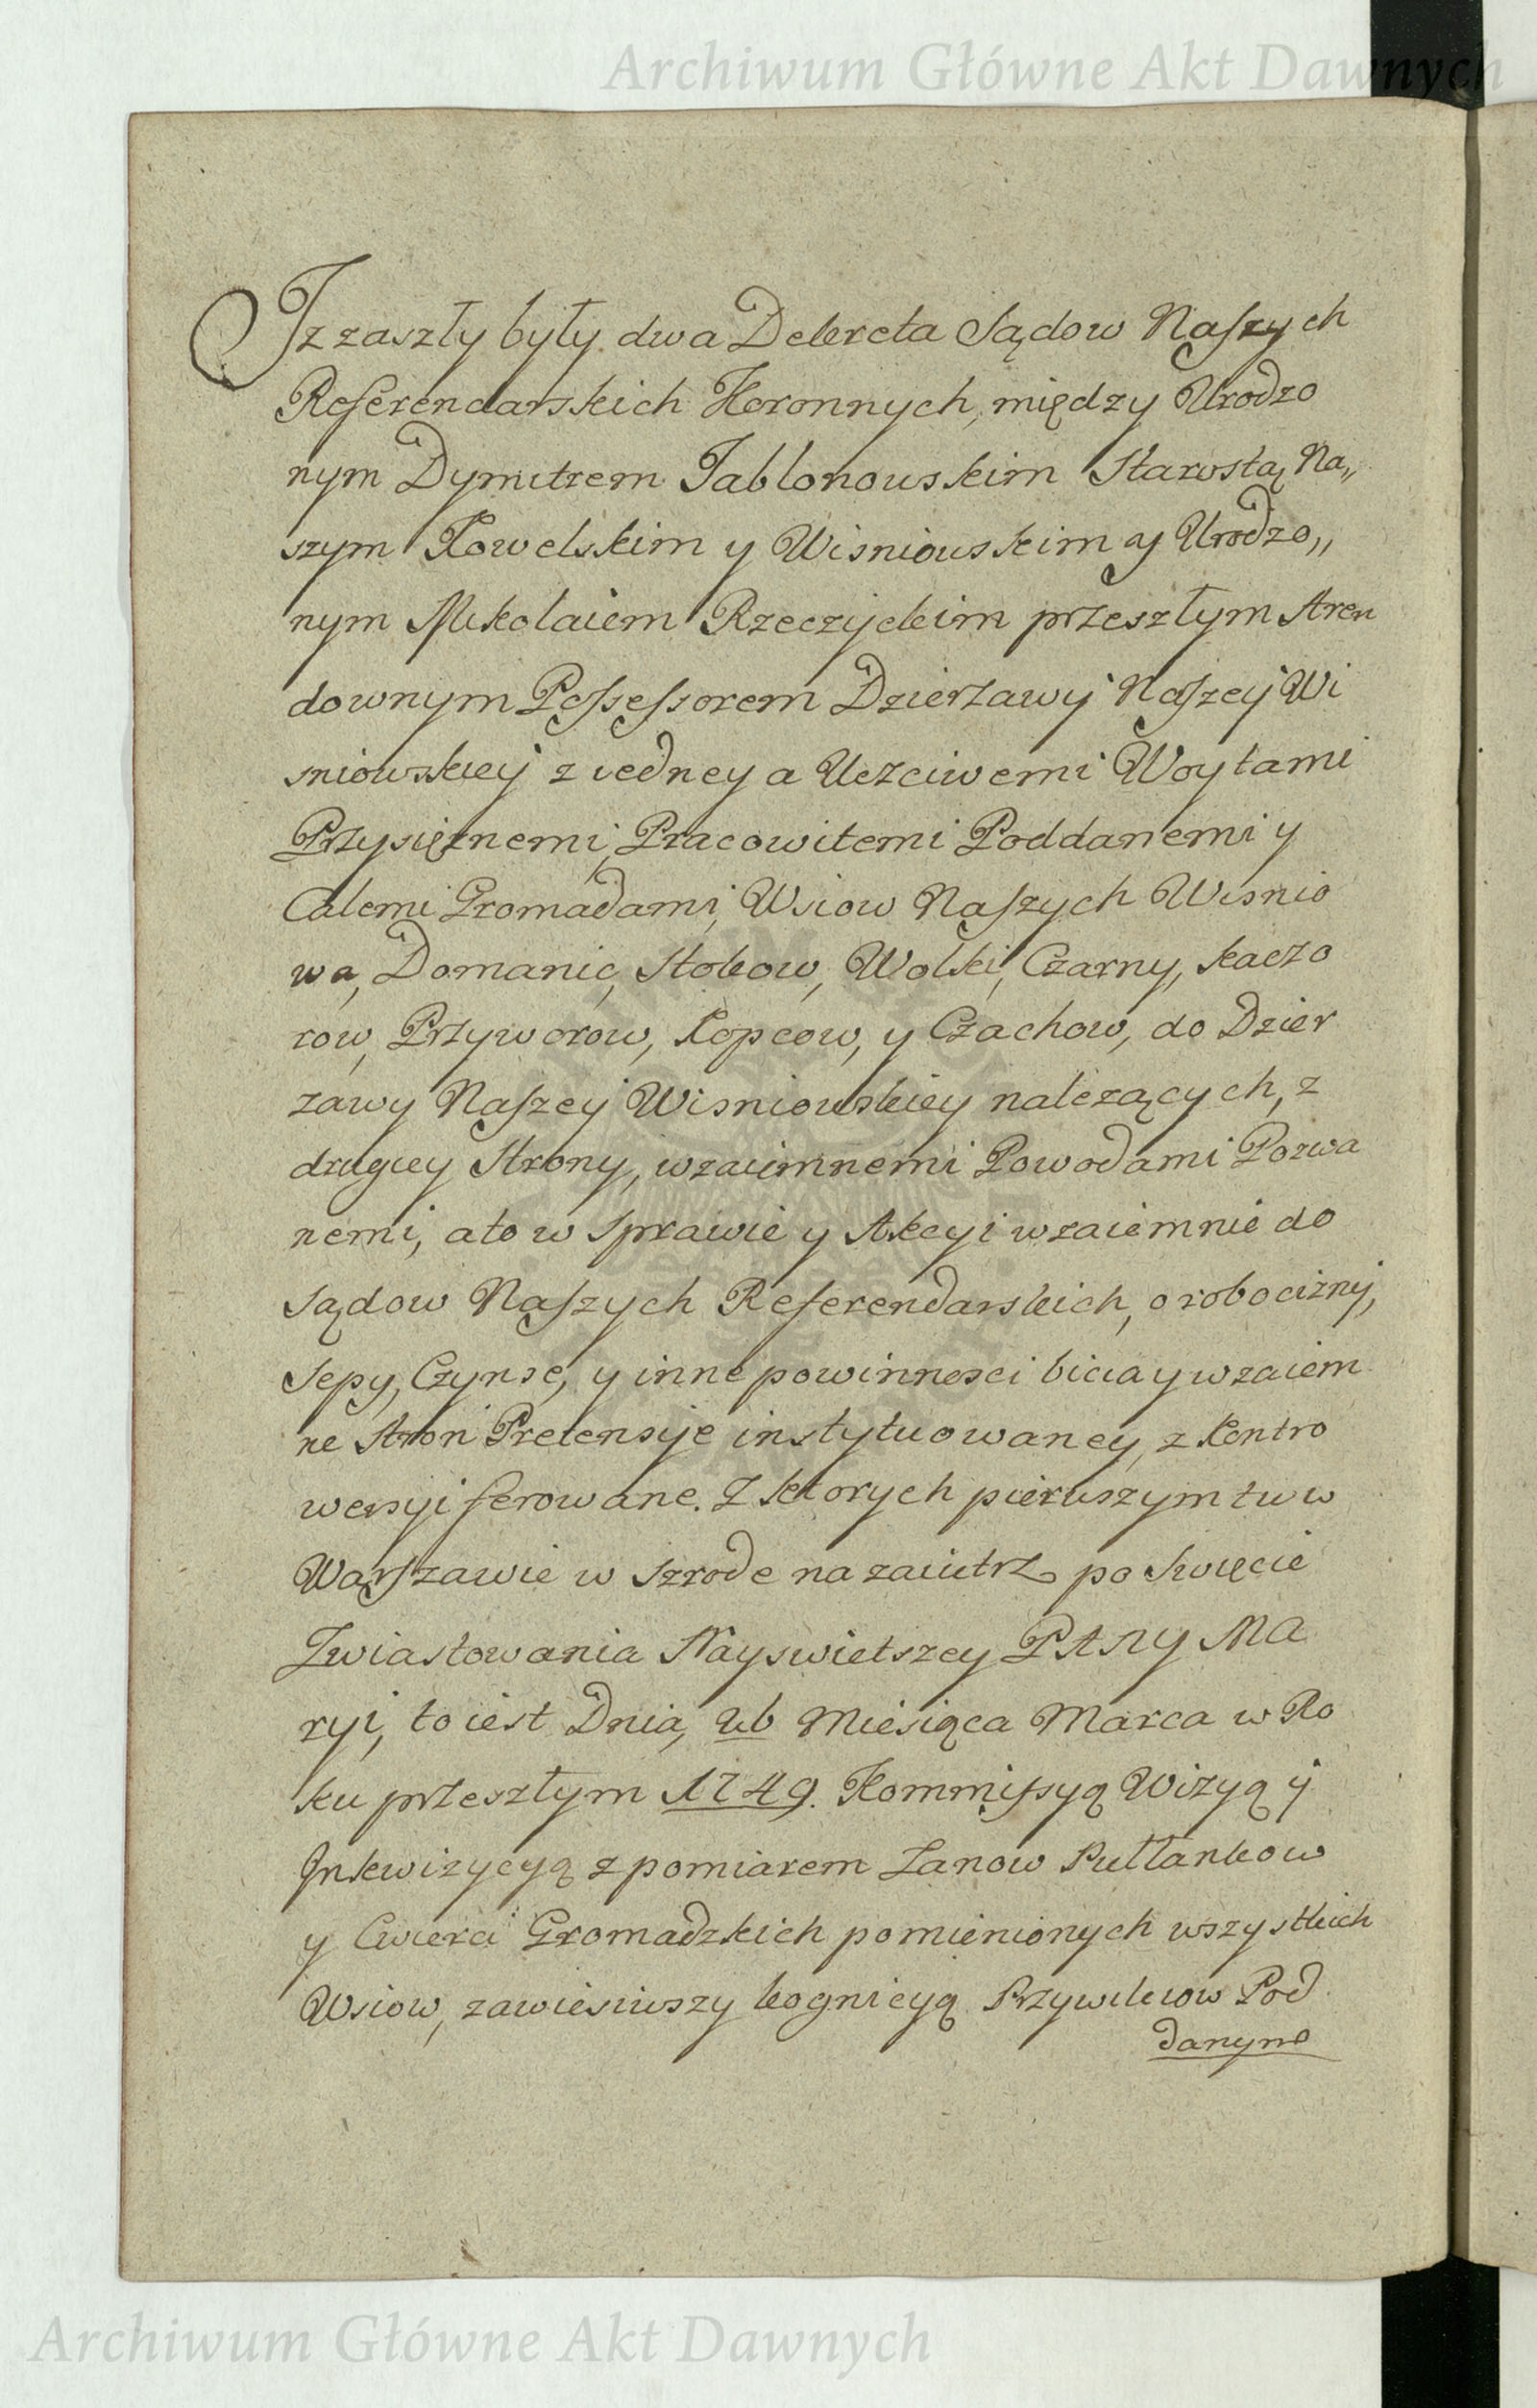 Archiwum Główne Akt Dawnych
Iz zaszły były dwa Dekreta Sądow Naszych
Referendarskich Koronnych, między Urodzo
nym Dymitrem Jabłonowskim Starostą Na„
szym Kowelskim y Wisniowskim ay Urodzo„
nym Mikołaiem Rzeczyckim przeszłym Aren
downym Possessorem Dzierzawy Naszey Wi
sniowskiey z iedney a Uczciwemi Woytami
Przysiężnemi, Pracowitemi Poddanemi y
Całemi Gromadami, Wsiow Naszych Wisnio
wa, Domanic, Stokow, Wolki, Czarny, Kaczo
row, Przyworow, Kopcow, y Czachow, do Dzier
zawy Naszey Wisniowskiey nalezących, z
drugiey Strony, wzaiemnemi Powodami Pozwa
nemi, a to w sprawie y Akcyi wzaiemnie do
Sądow Naszych Referendarskich, o robocizny,
Sepy, Czynsze, y inne powinnosci bicia y wzaiem
ne Stron Pretensye instytuowaney, z Kontro
wersyi ferowane. Z ktorych pierwszym tu w
Warszawie w Szrode nazaiutrz po Swięcie
Zwiastowania Nayswietszey PANY MA
ryi, to iest Dnia, 26 Miesiąca Marca w Ro
ku przeszłym 1749. Kommissyą Wizyą y
Inkwizycyą z pomiarem Łanow Pułłankow
y Cwierci Gromadzkich pomienionych wszystkich
Wsiow, zawiesiwszy kognicyą Przywileiow Pod
danym
Archiwum Główne Akt Dawnych